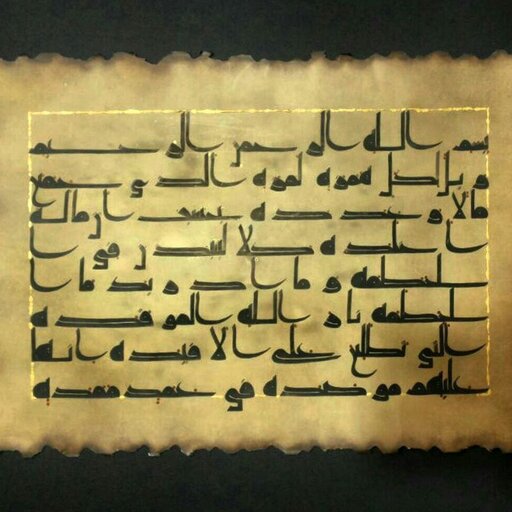 بسم الله الرحمن الرحيم
ويل لكل همزة لمزة الذي جمع
مالا وعدده يحسب أن ماله
أخلده كلا لينبذن في ا
لحطمة وما أدريك ما ا
لحطمة نار الله الموقدة
التي تطلع على الأفئدة إنها
عليهم موصدة في عمد ممددة